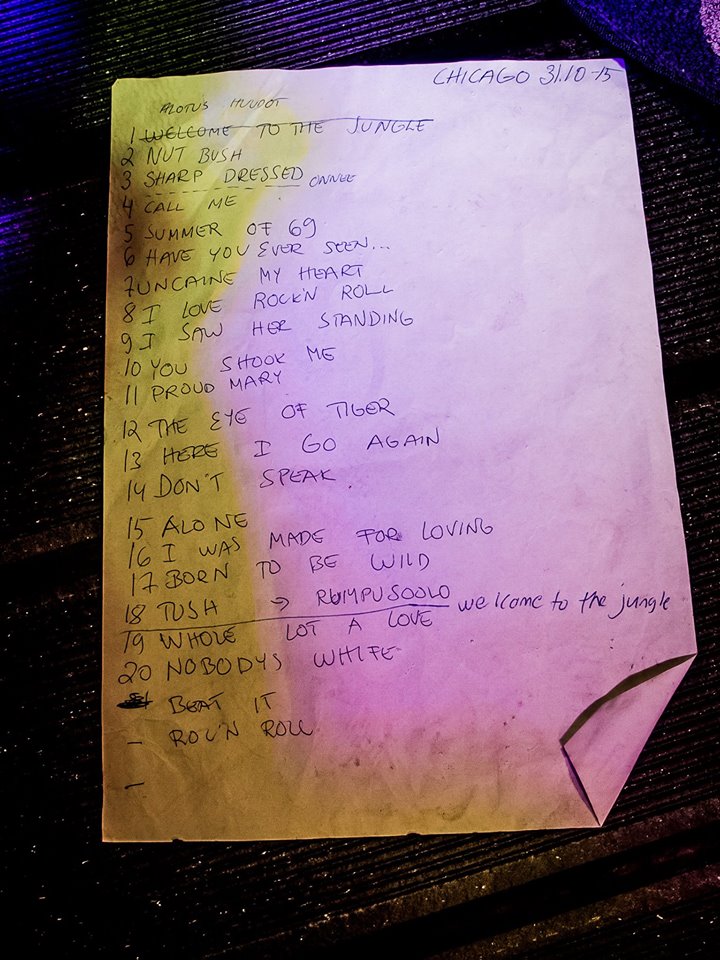 CHICAGO 31.10-15
ALOTUS HUUDOT
1 WELCOME TO THE JUNGLE
2 NUT BUSH
3 SHARP DRESSED ONNEE
4 CALL ME
5 SUMMER OF 69
6 HAVE YOU EVER SEEN...
7 UNCAINE MY HEART
8 I LOVE ROCK'N ROLL
9 I SAW HER STANDING
10 YOU SHOOK ME
11 PROUD MARY
12 THE EYE OF TIGER
13 HERE I GO AGAIN
14 DON'T SPEAK
15 ALONE
16 I WAS MADE FOR LOVING
17 BORN TO BE WILD
18 TUSH → RUMPUSOOLO
19 WHOLE LOT A LOVE welcome to the jungle
20 NOBODYS WHIFE
BEAT IT
- ROC'N ROLL
-